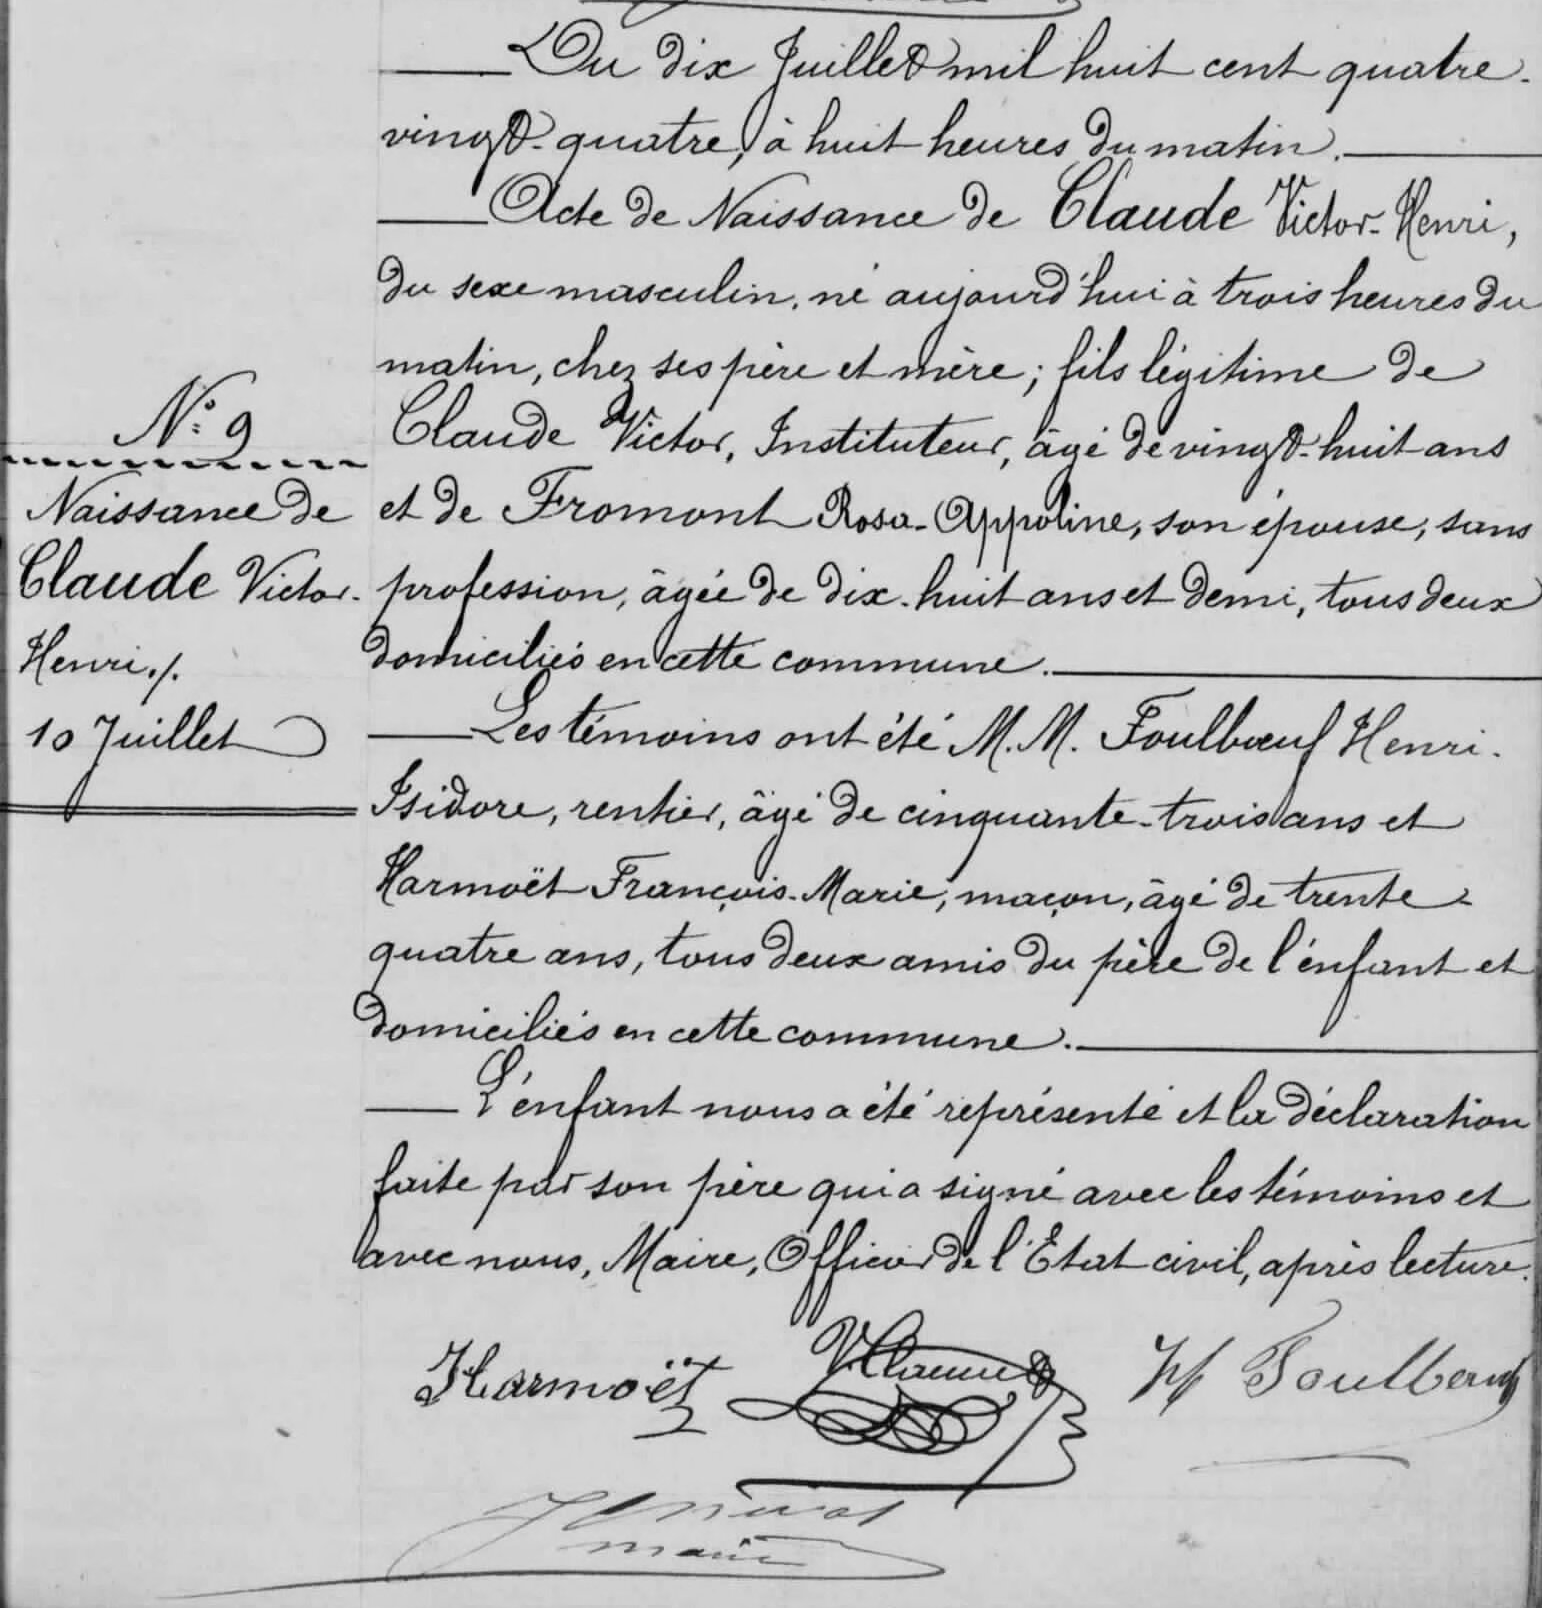 Du dix Juillet mil huit cent quatre-
vingt-quatre, à huit heures du matin.
Acte de Naissance de Claude Victor-Henri,
du sexe masculin, né aujourd'hui à trois heures du
matin, chez ses père et mère ; fils légitime de
N° 9
Claude Victor, Instituteur, âgé de vingt-huit ans
Naissance de
et de Fromont Rosa-Appoline, son épouse, sans
Claude Victor-
profession, âgée de dix-huit ans et demi, tous deux
Henri./.
domiciliés en cette commune.
10 Juillet
Les témoins ont été M.M. Foulbœuf Henri-
Isidore, rentier, âgé de cinquante-trois ans et
Harmoët François-Marie, maçon, âgé de trente-
quatre ans, tous deux amis du père de l'énfant et
domiciliés en cette commune.
L'énfant nous a été représenté et la déclaration
faite par son père qui a signé avec les témoins et
avec nous, Maire, Officier de l'État civil, après lecture.
Harmoët V. Claude H Foulbœuf
maire